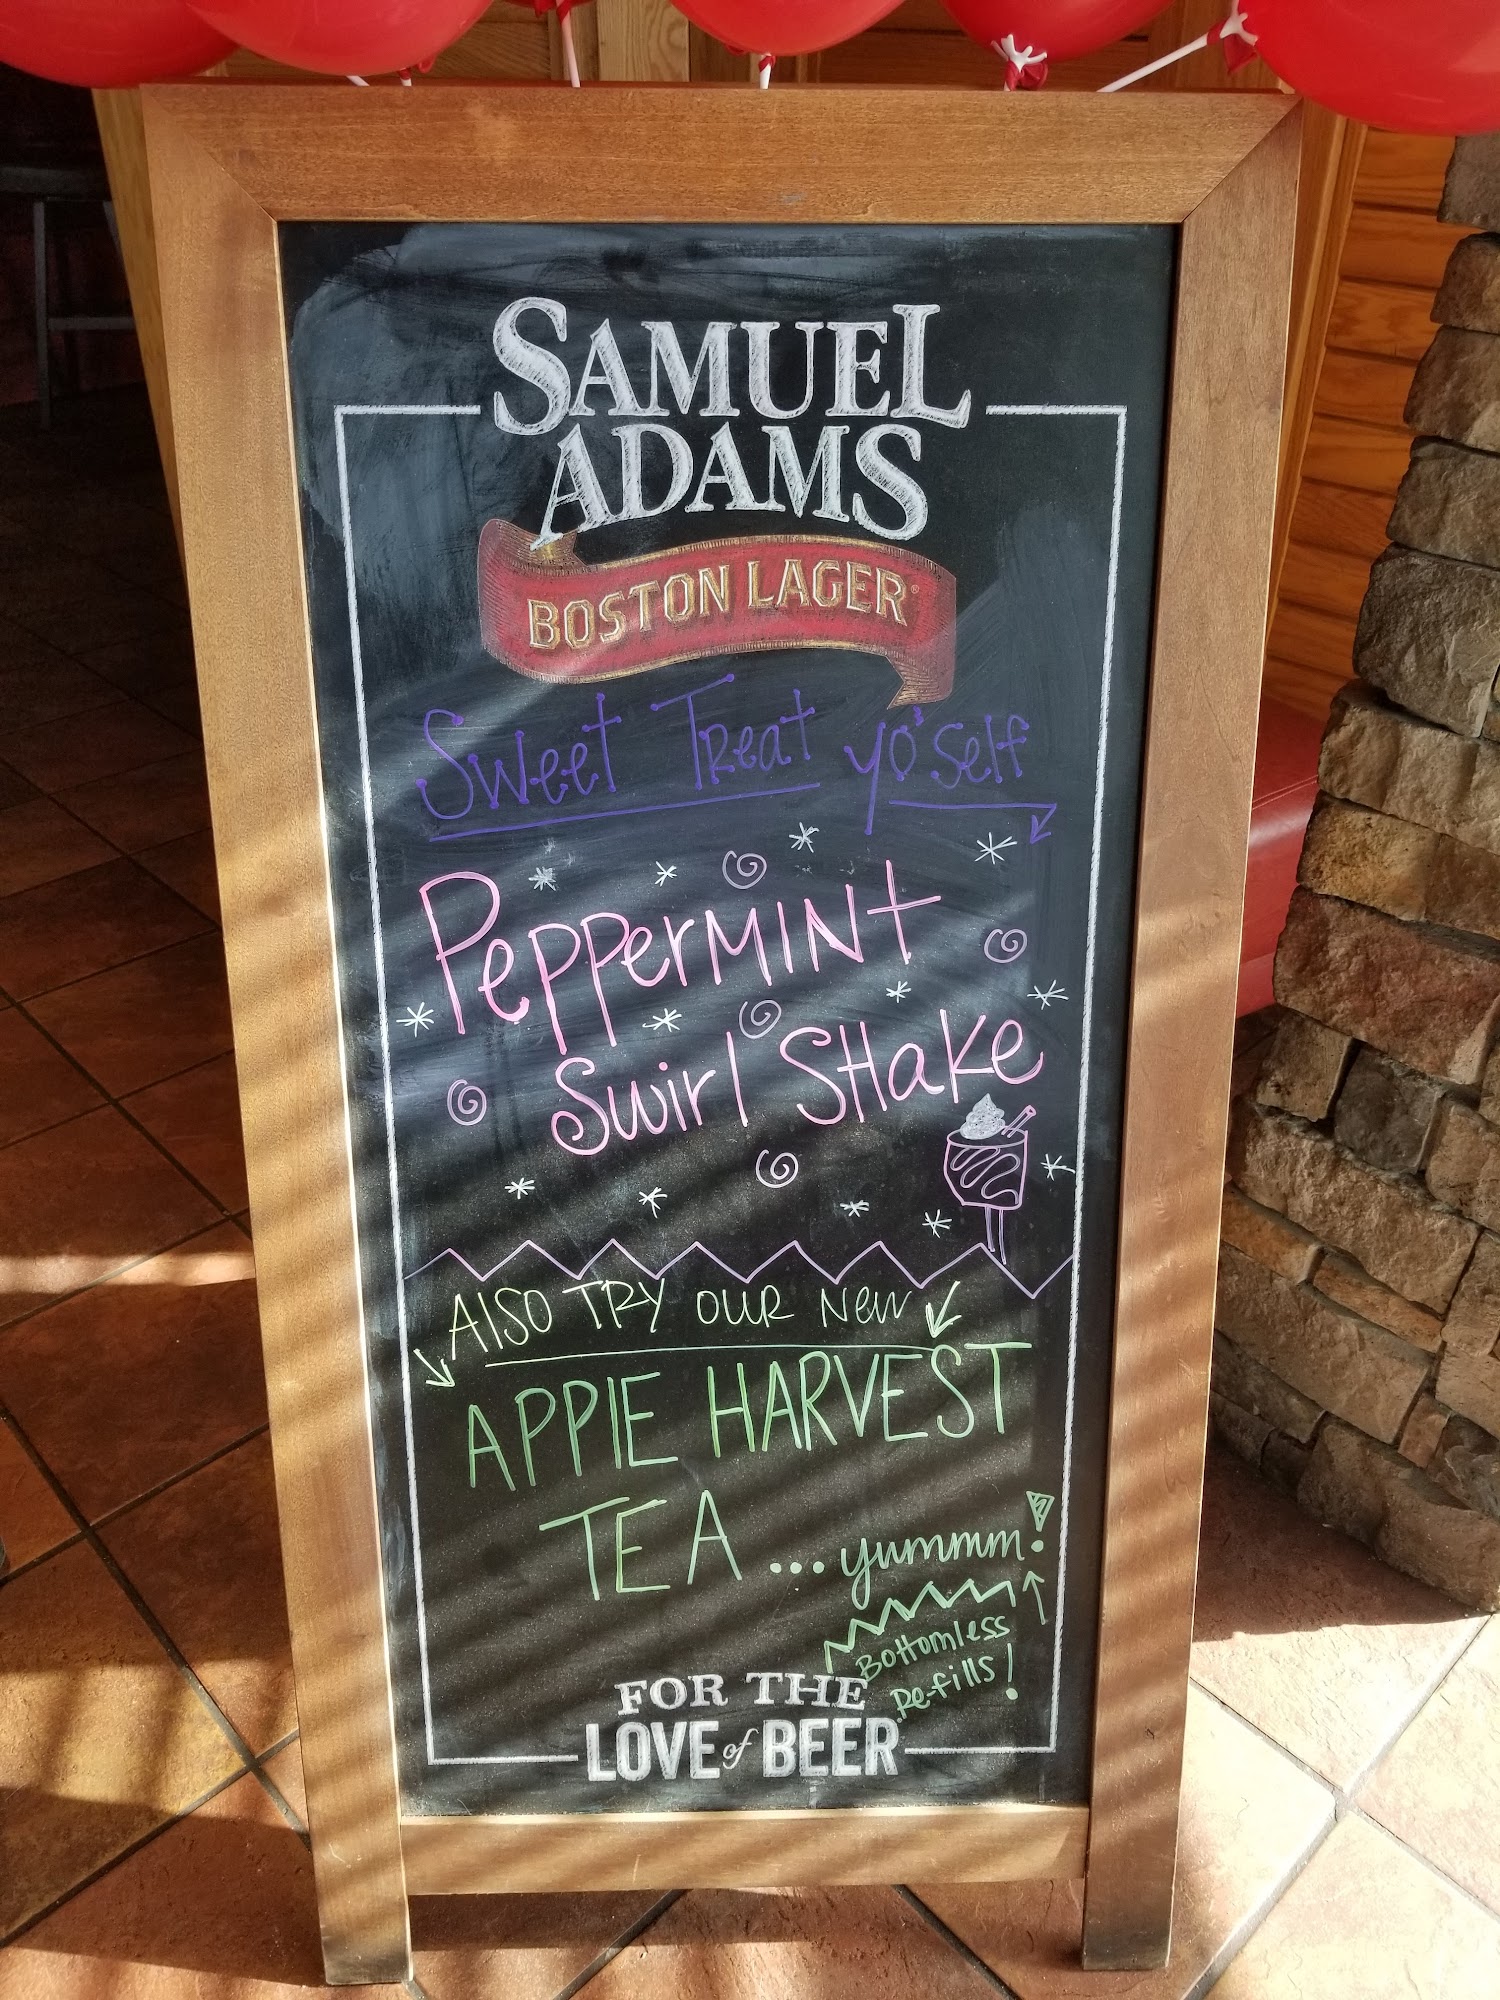 SAMUEL
ADAMS
BOSTON LAGER®
Sweet Treat yo'self
PepperMINt
Swirl SHake
AlSO TRY OUR New
APPlE HARVEST
TEA ...yummm!
Bottomless
Re-fills!
FOR THE
LOVE of BEER